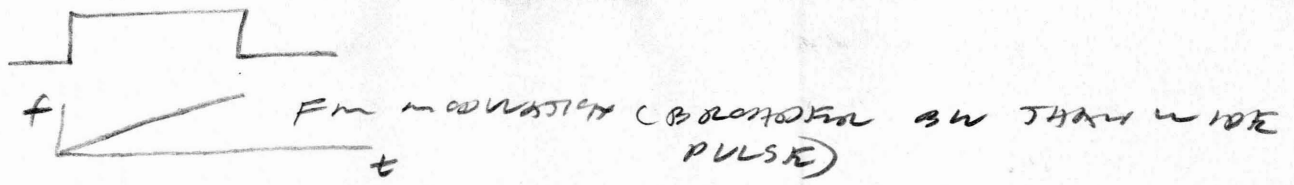 f
FM MODULATION (BROADER BW THAN WIDE
PULSE)
t